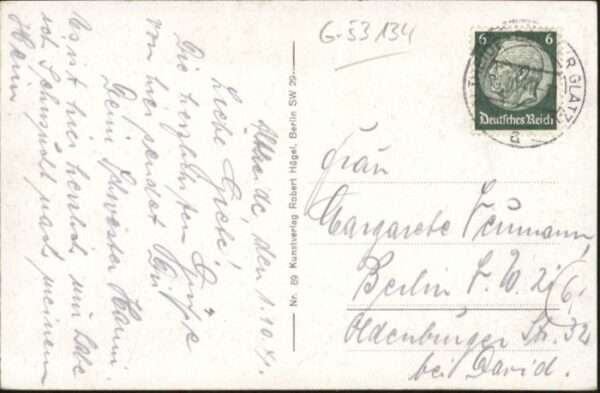 Altheide, den 1.10.41.
Liebe Grete!
Die herzlichsten Grüße
von hier sendet Dir
Deine Schwester Hanni.
Es ist hier herrlich, nur habe
ich Sehnsucht nach meinem
Heim
Nr. 89 Kunstverlag Robert Högel, Berlin SW 29
G-53134
6 6
Deutsches Reich
GLATZ
a
Frau
Margarete Neumann,
Berlin
Oldenburger Str. 32
bei David.